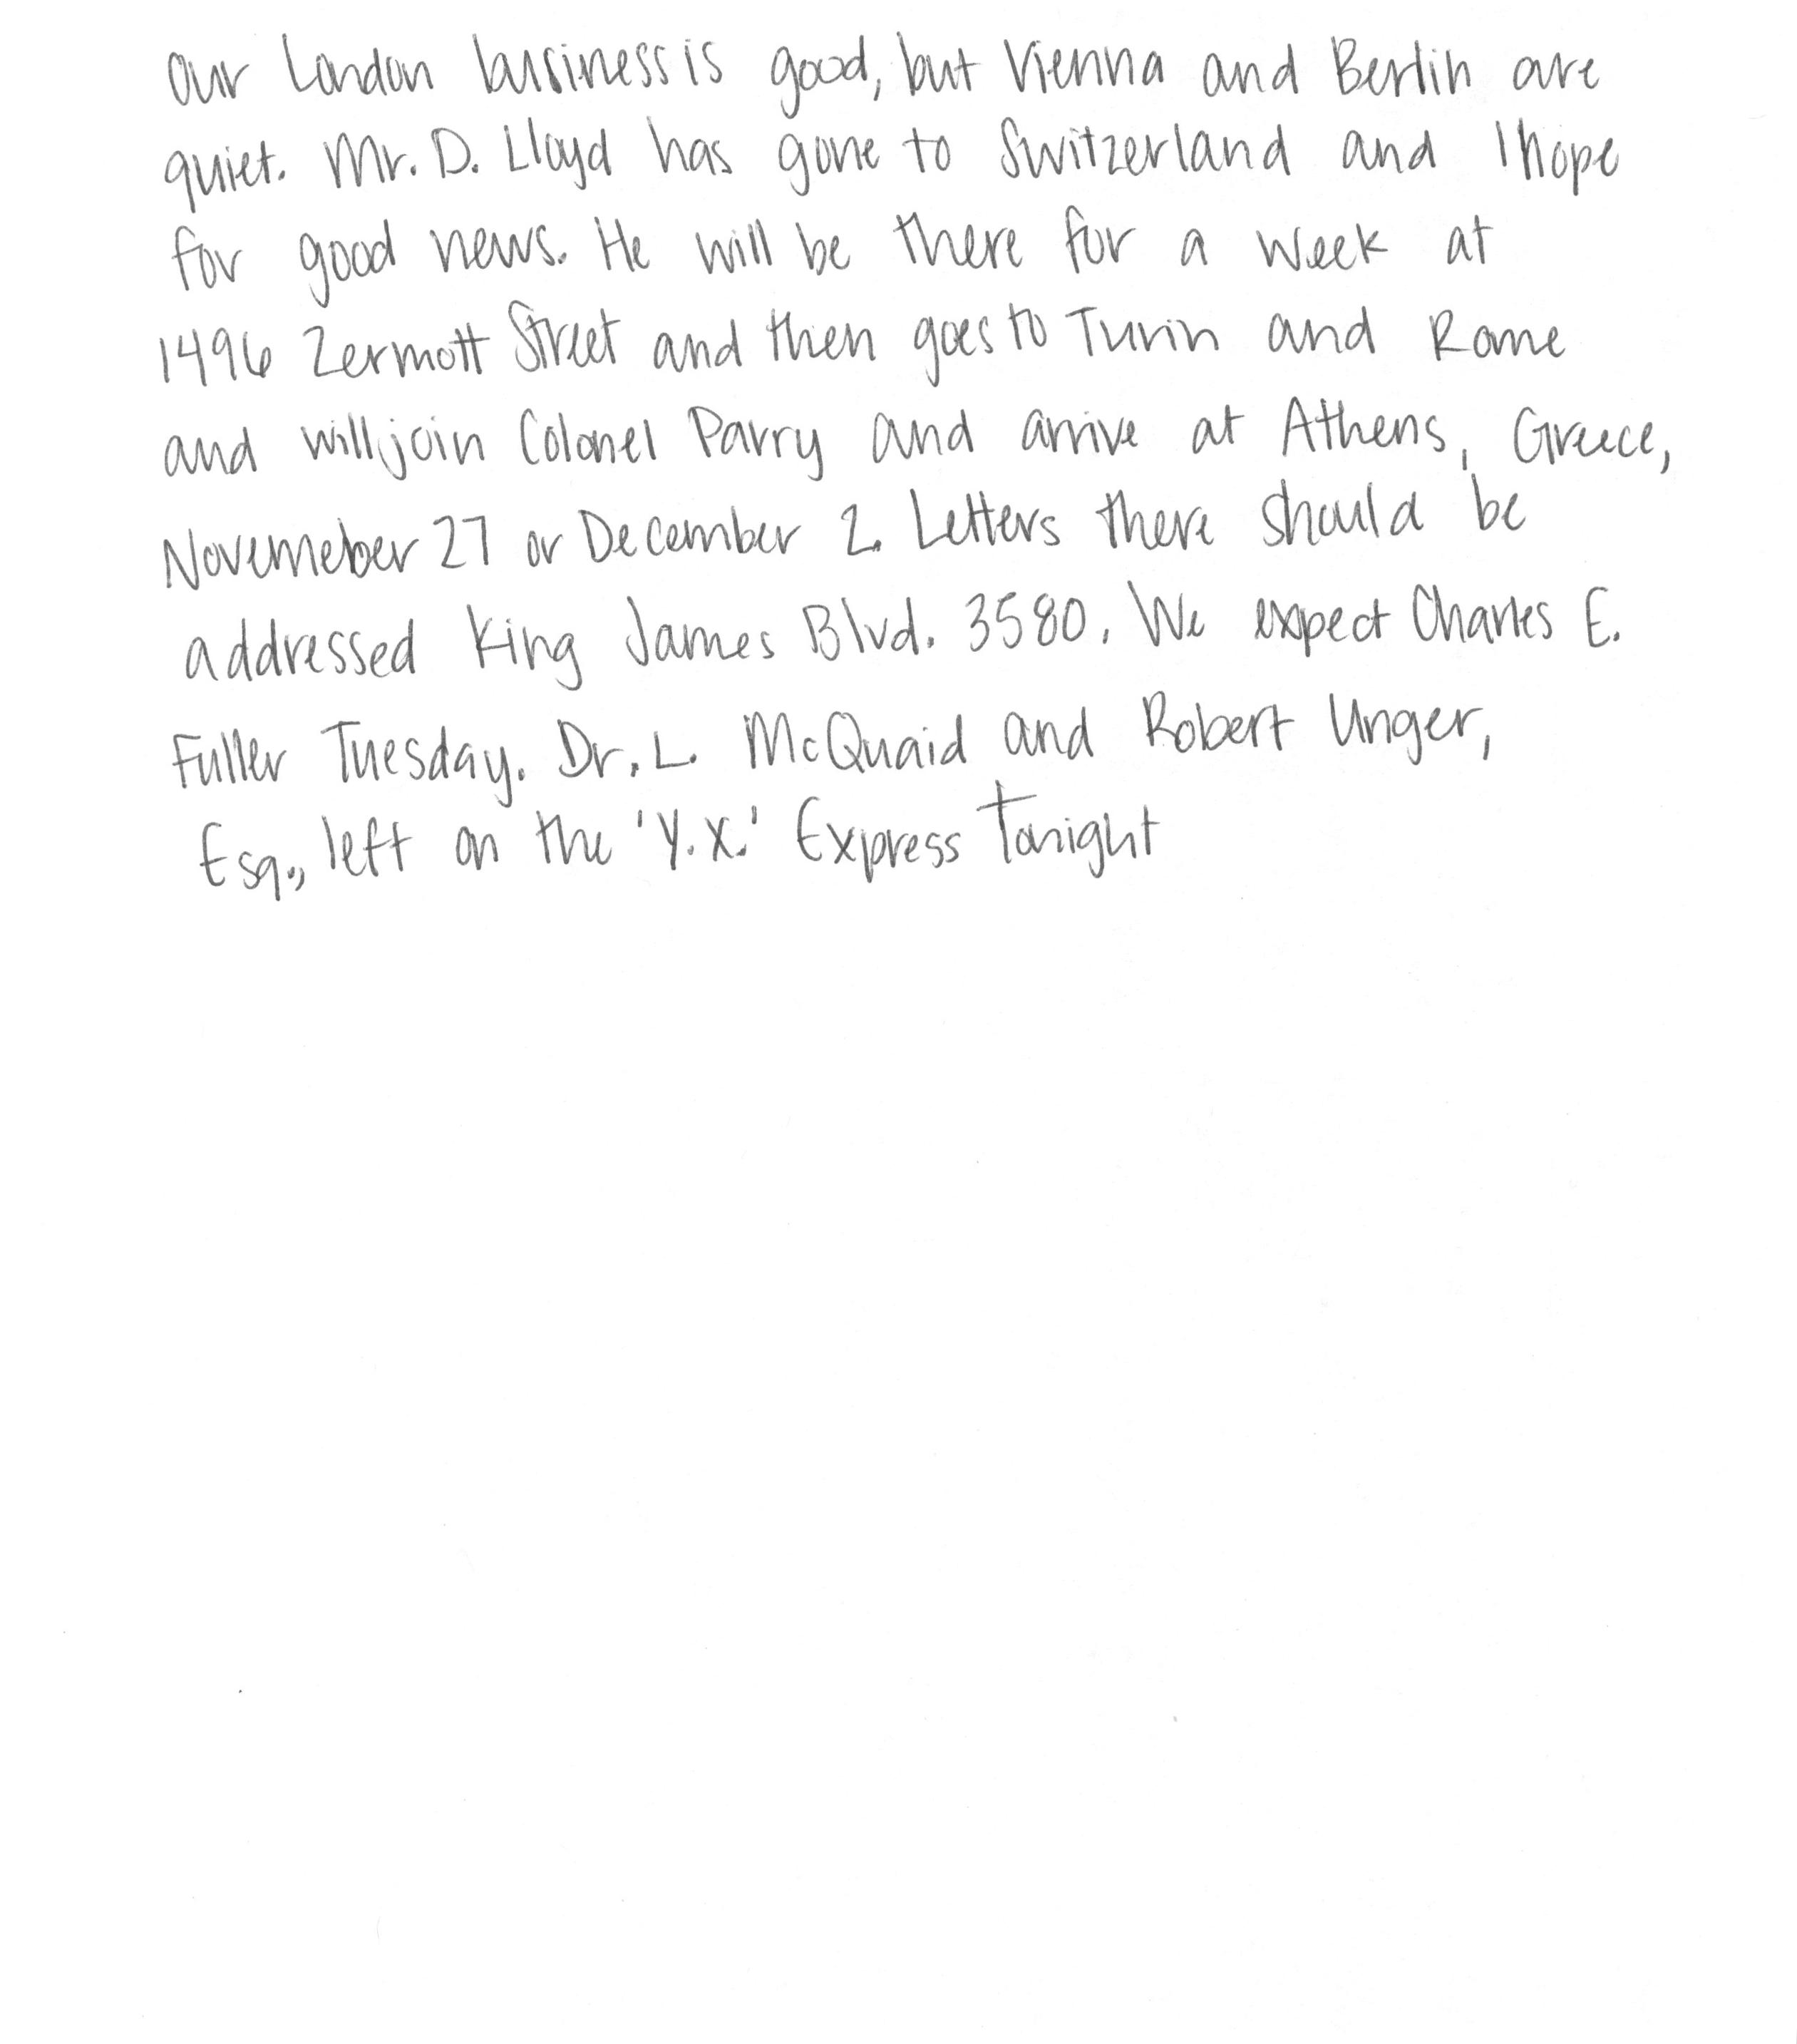 Our London business is good, but Vienna and Berlin are
quiet. Mr. D. Lloyd has gone to Switzerland and I hope
for good news. He will be there for a week at
1496 Zermott Street and then goes to Turin and Rome
and will join Colonel Parry and arrive at Athens, Greece,
Novemeber 27 or December 2. Letters there should be
addressed King James Blvd. 3580. We expect Charles E.
Fuller Tuesday. Dr. L. McQuaid and Robert Unger,
Esq., left on the 'Y.X.' Express Tonight